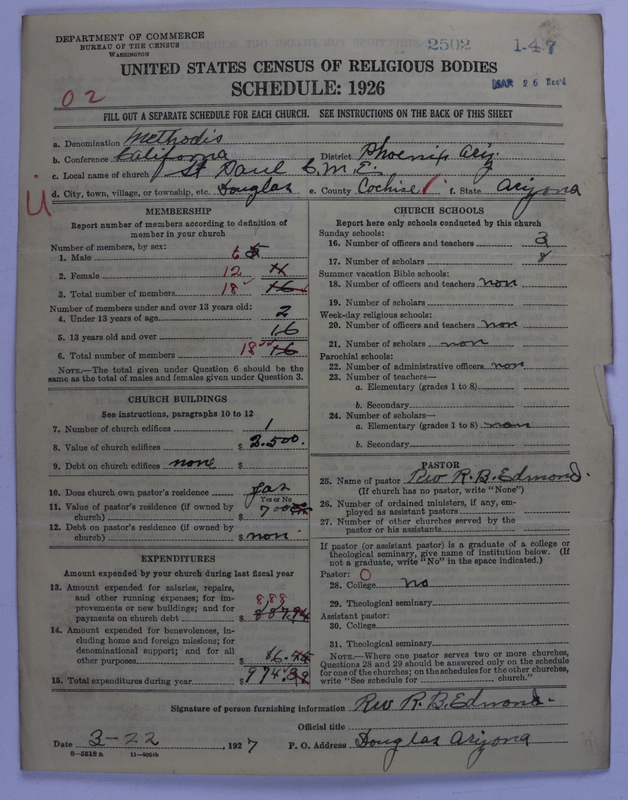 DEPARTMENT OF COMMERCE
BUREAU OF THE CENSUS
WASHINGTON
2502
1-47
UNITED STATES CENSUS OF RELIGIOUS BODIES
SCHEDULE: 1926
MAR 26 Rec'd
02
FILL OUT A SEPARATE SCHEDULE FOR EACH CHURCH. SEE INSTRUCTIONS ON THE BACK OF THIS SHEET
a. Denomination Methodis
b. Conference California District Phoenix Ariz
c. Local name of church St Paul C.M.E.
d. City, town, village, or township, etc. Douglas e. County Cochise f. State Arizona
MEMBERSHIP
Report number of members according to definition of member in your church
Number of members, by sex:
1. Male 6 5
2. Female 12 11
3. Total number of members 18 16
Number of members under and over 13 years old:
4. Under 13 years of age 2
5. 13 years old and over 16
6. Total number of members 18 16
NOTE.—The total given under Question 6 should be the same as the total of males and females given under Question 3.
CHURCH BUILDINGS
See instructions, paragraphs 10 to 12
7. Number of church edifices 1
8. Value of church edifices $ 2.500.
9. Debt on church edifices none $
10. Does church own pastor's residence yas
Yes or No
11. Value of pastor's residence (if owned by
church) $ 700
12. Debt on pastor's residence (if owned by
church) $ non
EXPENDITURES
Amount expended by your church during last fiscal year
13. Amount expended for salaries, repairs,
and other running expenses; for im-
provements or new buildings; and for
payments on church debt $ 888 887.94
14. Amount expended for benevolences, in-
cluding home and foreign missions; for
denominational support; and for all
other purposes $ 86.
15. Total expenditures during year $ 974.
CHURCH SCHOOLS
Report here only schools conducted by this church
Sunday schools:
16. Number of officers and teachers 3
17. Number of scholars 8
Summer vacation Bible schools:
18. Number of officers and teachers non
19. Number of scholars
Week-day religious schools:
20. Number of officers and teachers non
21. Number of scholars non
Parochial schools:
22. Number of administrative officers non
23. Number of teachers—
a. Elementary (grades 1 to 8)
b. Secondary
24. Number of scholars—
a. Elementary (grades 1 to 8) non
b. Secondary
PASTOR
25. Name of pastor Rev R. B. Edmond.
(If church has no pastor, write "None")
26. Number of ordained ministers, if any, em-
ployed as assistant pastors
27. Number of other churches served by the
pastor or his assistants
If pastor (or assistant pastor) is a graduate of a college or
theological seminary, give name of institution below. (If
not a graduate, write "No" in the space indicated.)
Pastor: 0
28. College no
29. Theological seminary
Assistant pastor:
30. College
31. Theological seminary
NOTE.—Where one pastor serves two or more churches,
Questions 28 and 29 should be answered only on the schedule
for one of the churches; on the schedules for the other churches,
write "See schedule for church."
Signature of person furnishing information Rev R. B. Edmond.
Official title
Date 3-22, 1927 P. O. Address Douglas Arizona
8-5518 a